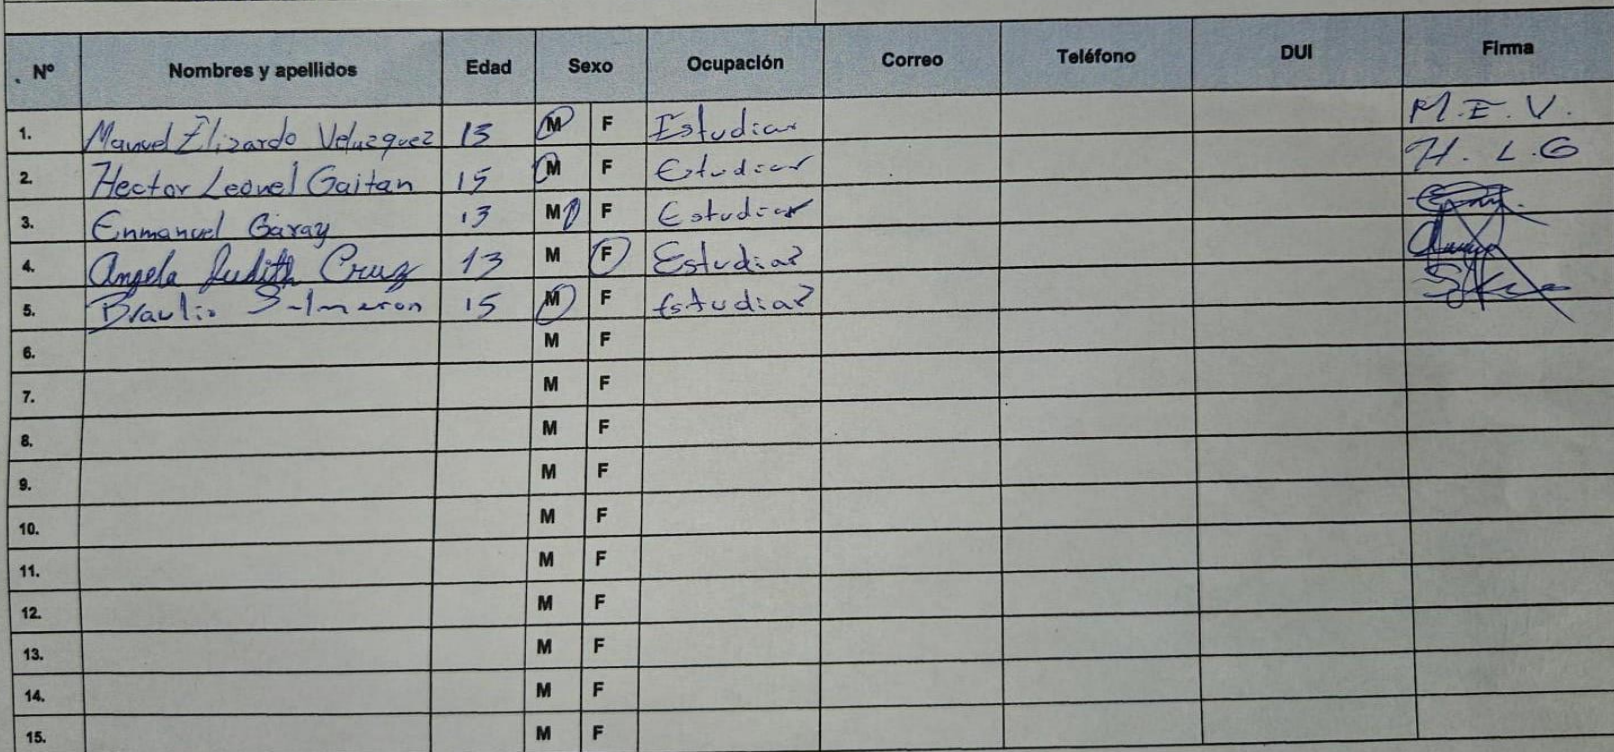 Nº Nombres y apellidos Edad Sexo Ocupación Correo Teléfono DUI Firma
1. Manuel Elizardo Veluzquez 13 M F Estudiar M.E.V.
2. Hector Leonel Gaitan 15 M F Estudiar H.L.G
3. Enmanuel Garay 13 M F Estudiar
4. Angela Judith Cruz 13 M F Estudiar
5. Braulio Salmeron 15 M F Estudiar
6. M F
7. M F
8. M F
9. M F
10. M F
11. M F
12. M F
13. M F
14. M F
15. M F